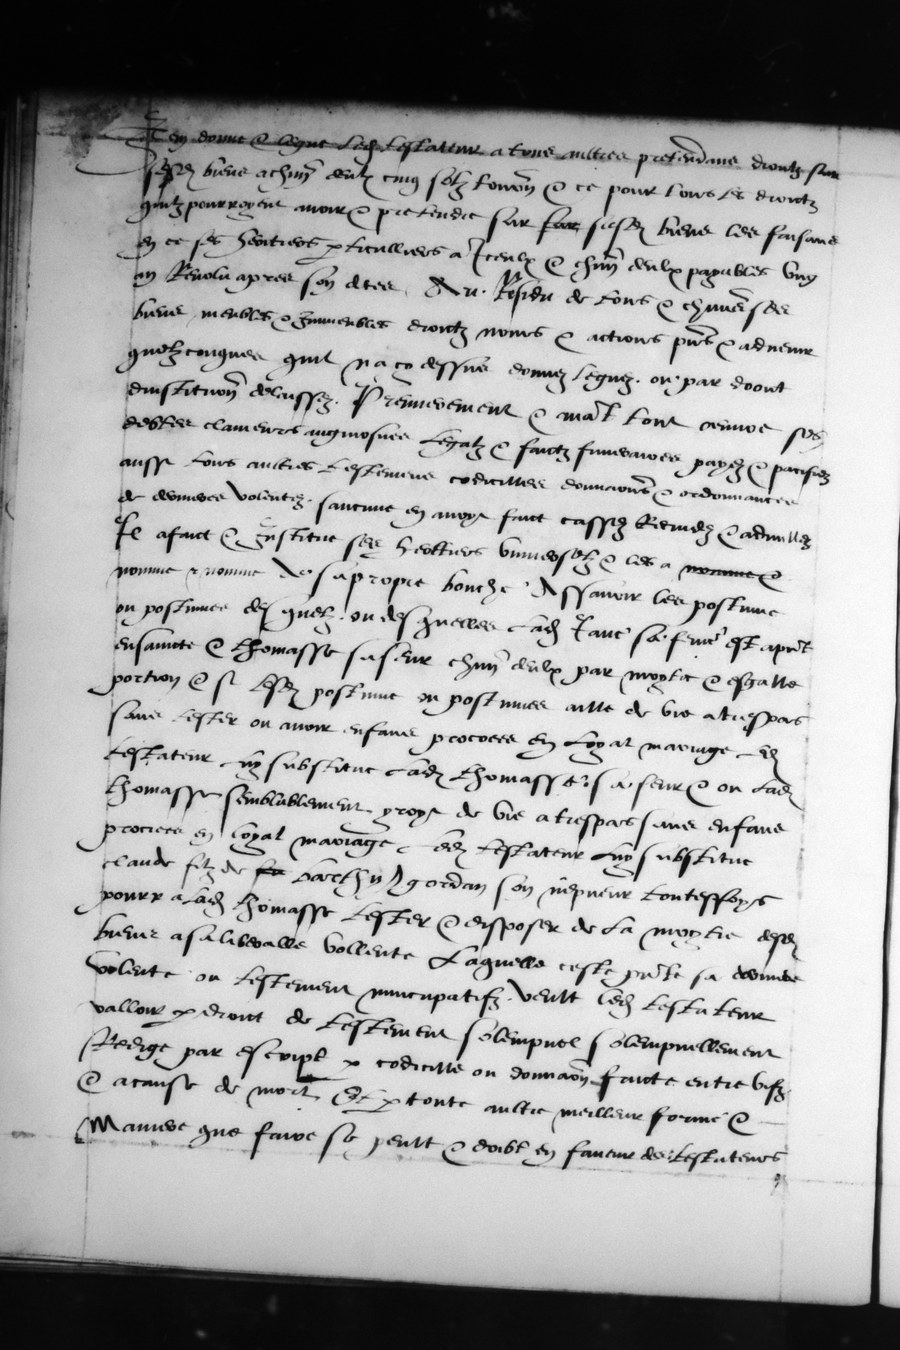 Item donne & legue led testateur a tous aultres pretendans droictz sur
sesd biens a chun deulx cinq solz tourn & ce pour tous les droictz
quilz pourroyent avoir & pretendre sur sesd biens les faisans
en ce ses heritiers pticulliers a Iceulx & chun deulx payables ung
an Revolu apres son deces Au Residu de tous & chuns ses
biens meubles & Immeubles droictz noms & actions pns & advenir
quelzconques quil na cy dessus donnez leguez ou par droict
dinstitution delaissez Premierement & avant tout oeuvre ses
debtes clameurs aulmosnes legatz & faictz funeraires payez & pacifiez
aussi tous aultres testemens codicilles donnaions & ordonnances
de dernieres volentez saucune en avoye faict cassez Revoudz & adnullez
Il a faict & Institue ses heritiers universelz & les a nomme &
nomme & nomme de sa propre bouche Assavoir les postume
ou postumes desquelz ou desquelles lad Jane sa feme est apnt
ensaincte & Thomasse sa seur chun deulx par moytie & esgalle
portion & si lesd postume ou postumes alle de vie a trespas
sans tester ou avoir enfans procrees en loyal mariage led
testateur luy substitue lad Thomasse sa seur & ou lad
Thomasse semblablement yroye de vie a trespas sans enfans
procrees en loyal mariage led testateur luy substitue
claude filz de barthmy gordan son nepveur touteffoys
pourra lad Thomasse tester & disposer de la moytie desd
biens a sa liberalle vollente Laquelle ceste pnte sa derniere
volente ou testement nuncupatifz veult led testateur
valloir p droict de testement solempnel solempnellement
Redige par escript p codicille ou donnaon faicte entre vifz
& a cause de mort Et p toute aultre meilleur forme &
Maniere que faire se peult & doibt en faveur des testateurs